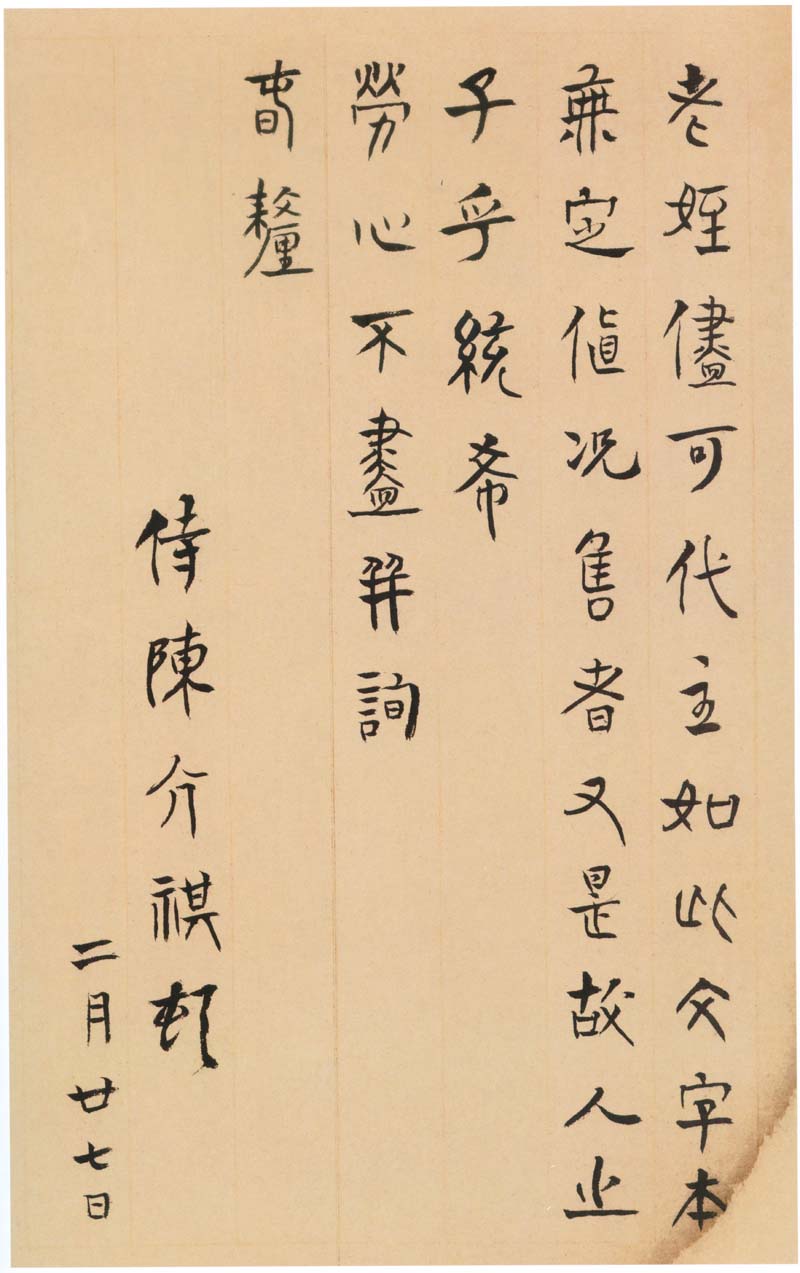 老姪儘可代主如此文字本
無定値况售者又是故人之
子乎統希
勞心不盡幷詢
旾釐
侍陳介祺頓
二月廿七日